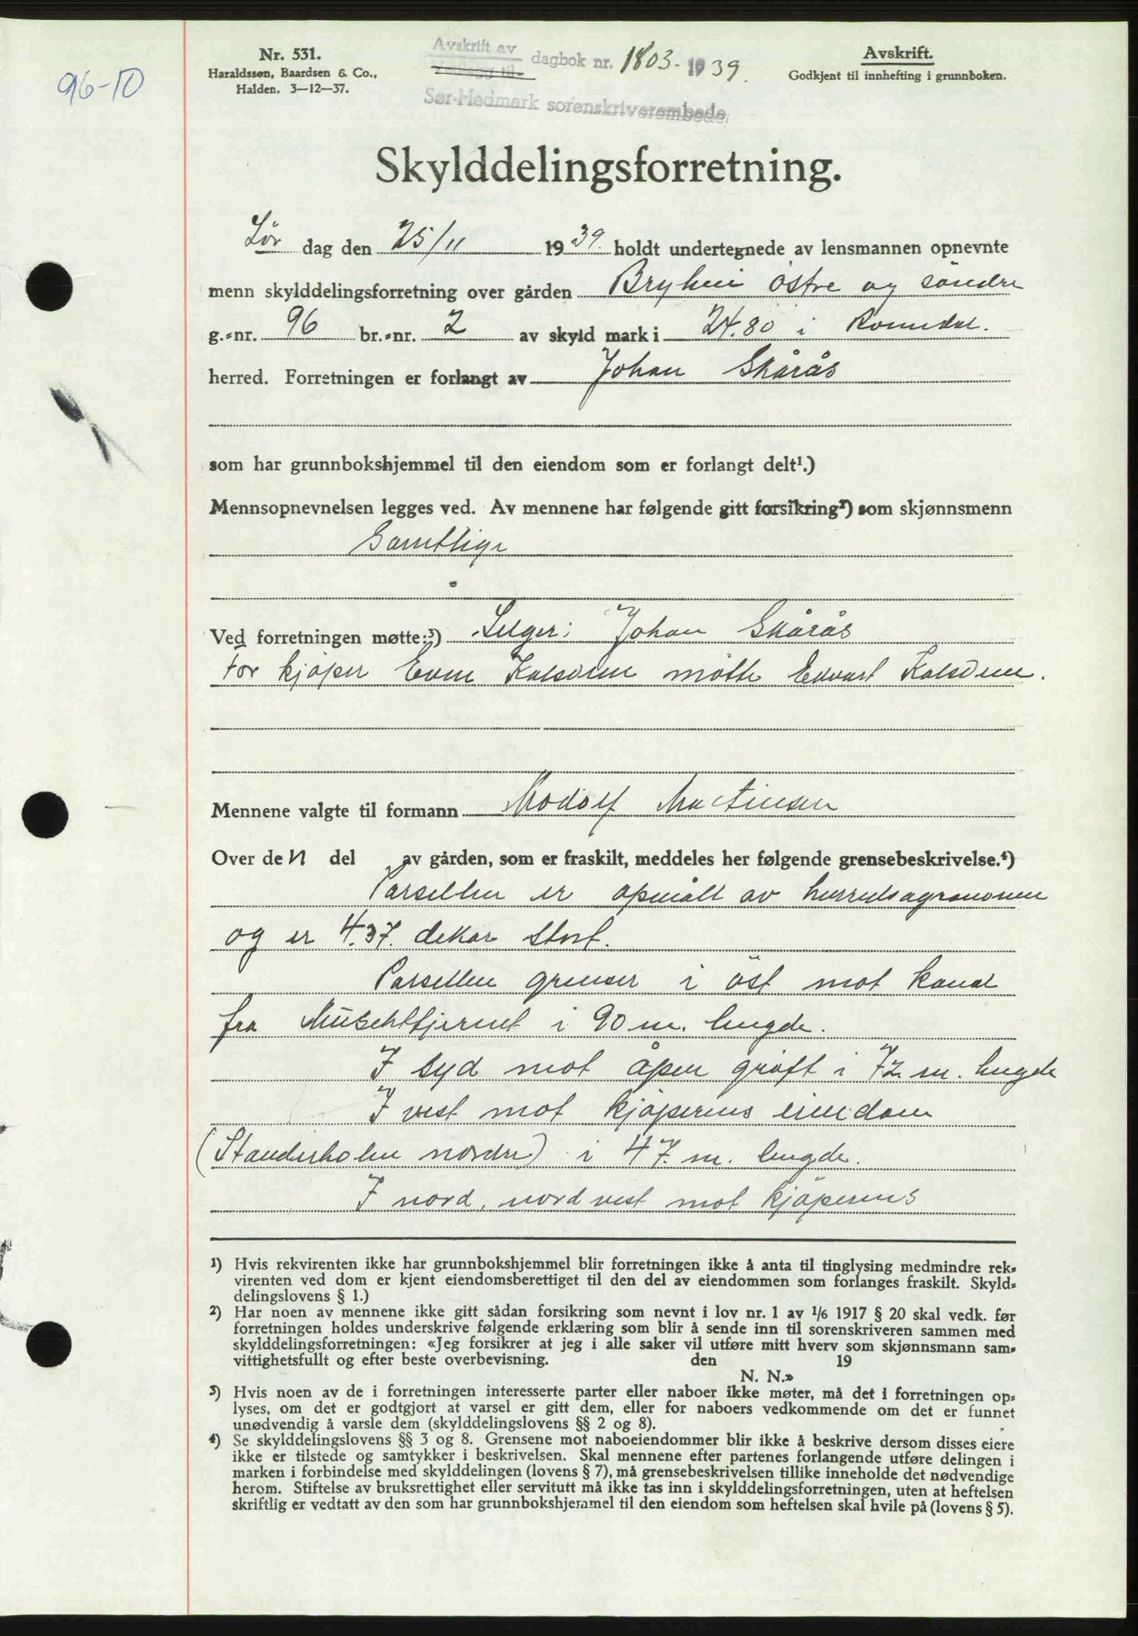 96-10
Nr. 531.
Haraldssøn, Baardsen & Co.,
Halden. 3—12—37.
Avskrift av dagbok nr. 1803-1939.
Sør-Hedmark sorenskriverembede.
Avskrift.
Godkjent til innhefting i grunnboken.
Skylddelingsforretning.
Lør dag den 25/11 1939. holdt undertegnede av lensmannen opnevnte
menn skylddelingsforretning over gården Bryhni östre og söndre
g.-nr. 96 br.-nr. 2 av skyld mark i 24.80 i Romedal.
herred. Forretningen er forlangt av Johan Skårås
som har grunnbokshjemmel til den eiendom som er forlangt delt¹.)
Mennsopnevnelsen legges ved. Av mennene har følgende gitt forsikring²) som skjønnsmenn
Samtlige
Ved forretningen møtte:³) Selger: Johan Skårås
for kjöper Even Kolsdum mötte Edvart Kolsdum.
Mennene valgte til formann Modolf Martinsen
Over den del av gården, som er fraskilt, meddeles her følgende grensebeskrivelse.⁴)
Parsellen er opmålt av herredsagronomen
og er 4.37. dekar stort.
Parsellen grenser i öst mot kanal
fra i 90 m. lengde.
I syd mot åpen gröft i 72 m. lengde
I vest mot kjöperens eiendom
(Standerholen nordre) i 47. m. lengde.
I nord, nordvest mot kjöperens
¹) Hvis rekvirenten ikke har grunnbokshjemmel blir forretningen ikke å anta til tinglysing medmindre rek-
virenten ved dom er kjent eiendomsberettiget til den del av eiendommen som forlanges fraskilt. Skyld-
delingslovens § 1.)
²) Har noen av mennene ikke gitt sådan forsikring som nevnt i lov nr. 1 av 1/6 1917 § 20 skal vedk. før
forretningen holdes underskrive følgende erklæring som blir å sende inn til sorenskriveren sammen med
skylddelingsforretningen: «Jeg forsikrer at jeg i alle saker vil utføre mitt hverv som skjønnsmann sam-
vittighetsfullt og efter beste overbevisning. den 19
N. N.»
³) Hvis noen av de i forretningen interesserte parter eller naboer ikke møter, må det i forretningen op-
lyses, om det er godtgjort at varsel er gitt dem, eller for naboers vedkommende om det er funnet
unødvendig å varsle dem (skylddelingslovens §§ 2 og 8).
⁴) Se skylddelingslovens §§ 3 og 8. Grensene mot naboeiendommer blir ikke å beskrive dersom disses eiere
ikke er tilstede og samtykker i beskrivelsen. Skal mennene efter partenes forlangende utføre delingen i
marken i forbindelse med skylddelingen (lovens § 7), må grensebeskrivelsen tillike inneholde det nødvendige
herom. Stiftelse av bruksrettighet eller servitutt må ikke tas inn i skylddelingsforretningen, uten at heftelsen
skriftlig er vedtatt av den som har grunnbokshjemmel til den eiendom som heftelsen skal hvile på (lovens § 5).